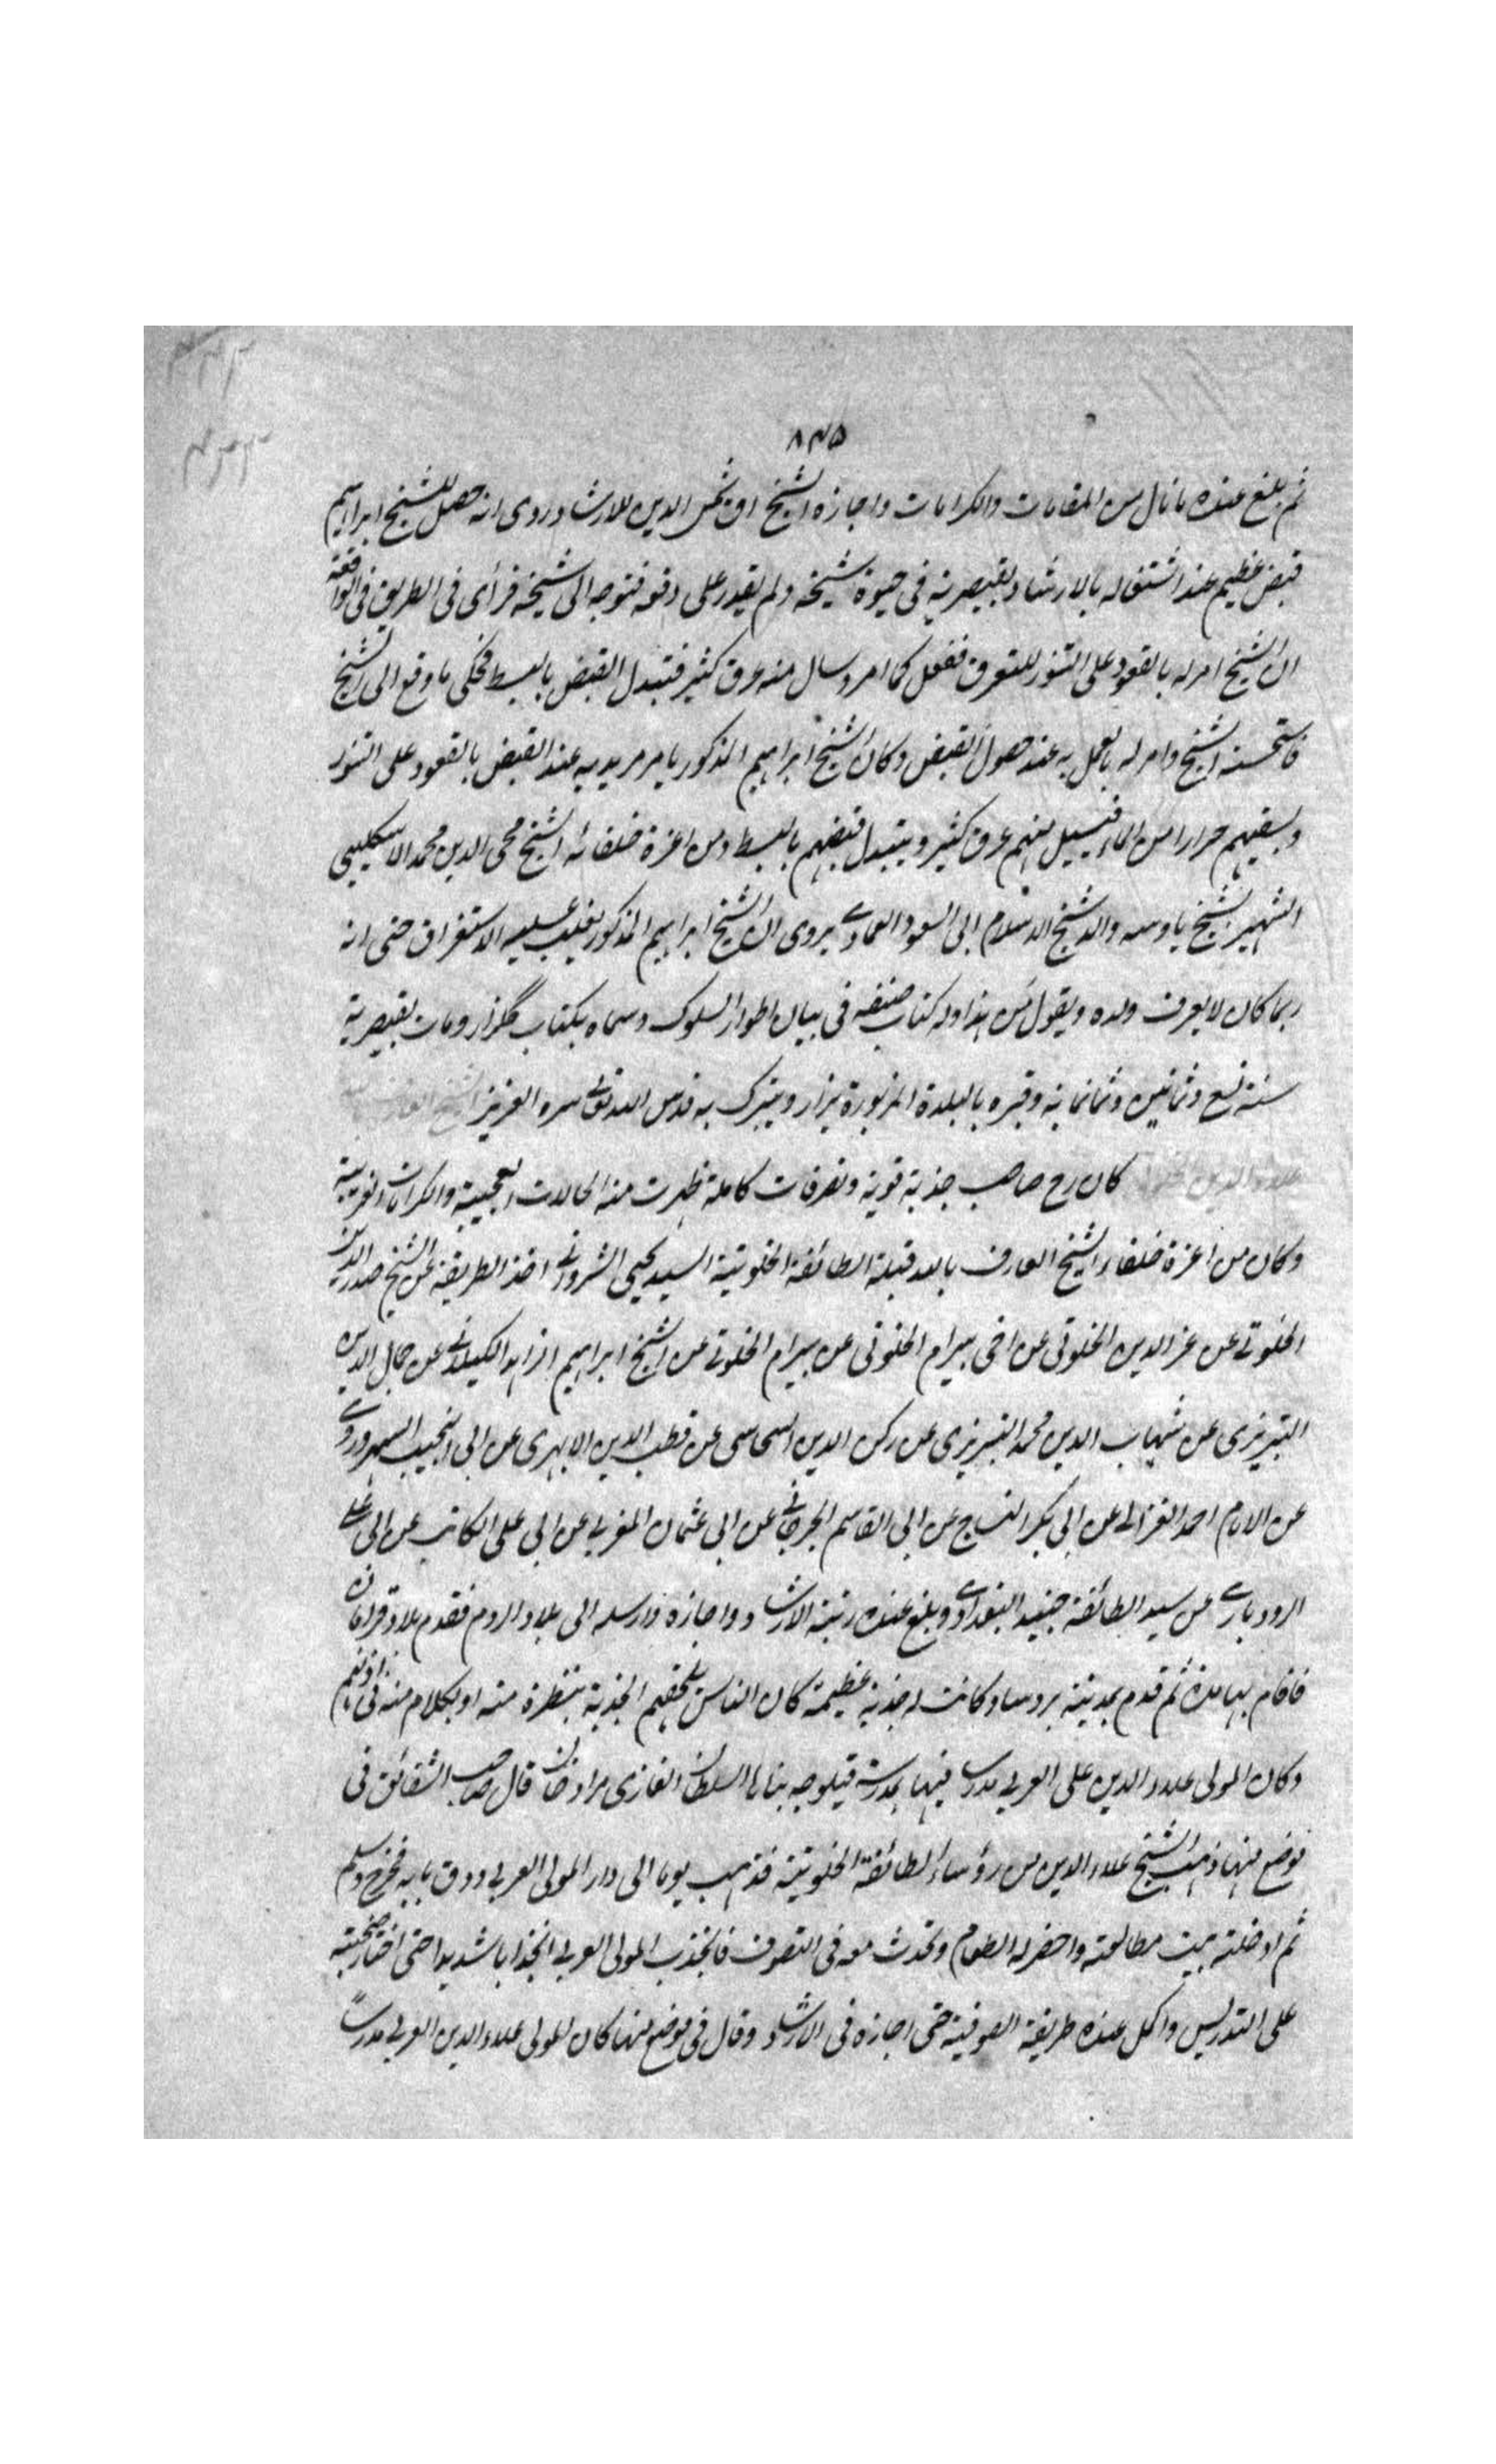 ٨٣٥
ثم بلغ عنده ما نال من المقامات والكرامات واجازه الشيخ اق شمس الدين للارشاد وروى انه حصل للشيخ ابراهيم
قبض عظيم عند اشتغاله بالارشاد بقيصرية في حيوة شيخه ولم يقدر على دفعه فتوجه الى شيخه فرأى في الطريق في الواقعة
ان الشيخ امر له بالقعود على التنور للتعرق ففعل كما امر وسال منه عرق كثير فتبدل القبض بالبسط فحكى ما وقع الى الشيخ
فاستحسنه الشيخ وامر له بالعمل به عند حصول القبض وكان الشيخ ابراهيم المذكور يامر مريديه عند القبض بالقعود على التنور
ويسقيهم جرارا من الماء فيسيل منهم عرق كثير ويتبدل قبضهم بالبسط ومن اعزة خلفائه الشيخ محى الدين محمد الاسكليبى
الشهير بشيخ ياوسه والد شيخ الاسلام ابى السعود العمادى يروى ان الشيخ ابراهيم المذكور يغلب عليه الاستغراق حتى انه
ربما كان لا يعرف ولده ويقول من هذا وله كتاب صنفه في بيان اطوار السلوك وسماه بكتاب گلزار ومات بقيصرية
سنة تسع وثمانين وثمانمائة وقبره بالبلدة المزبورة يزار ويتبرك به قدس الله تعالى سره العزيز الشيخ العارف بالله
علاء الدين الخلوتى كان رح صاحب جذبة قوية وتصرفات كاملة ظهرت منه الحالات العجيبة والكرامات الغريبة
وكان من اعزة خلفاء الشيخ العارف بالله قبلة الطائفة الخلوتية السيد يحيى الشروانى اخذ الطريقة عن الشيخ صدر الدين
الخلوتى عن عز الدين الخلوتى عن اخى بيرام الخلوتى عن بيرام الخلوتى عن الشيخ ابراهيم الزاهد الكيلانى عن جمال الدين
التبريزى عن شهاب الدين محمد التبريزى عن ركن الدين السحاسى عن قطب الدين الابهرى عن ابى النجيب السهروردى
عن الامام احمد الغزالى عن ابى بكر النساج عن ابى القاسم الجرجانى عن ابى عثمان المغربى عن ابى على الكاتب عن ابى على
الرودبارى عن سيد الطائفة جنيد البغدادى وبلغ عنده رتبة الارشاد واجازه وارسله الى بلاد الروم فقدم بلاد قرامان
فاقام بها مدة ثم قدم بمدينة بروسا وكانت له جذبة عظيمة كان الناس يلحقهم الجذبة بنظرة منه او بكلام منه فى اذانهم
وكان المولى علاء الدين على العربى مدرسا فيها بمدرسة قپلوجه بناها السلطان الغازى مراد خان قال صاحب الشقائق فى
موضع منها ذهب الشيخ علاء الدين من رؤساء الطائفة الخلوتية فذهب يوما الى دار المولى العربى ودق بابه فخرج وسلم
ثم ادخله بيت مطالعته واحضر له الطعام وتحدث معه فى التصوف فانجذب المولى العربى انجذابا شديدا حتى اختار صحبته
على التدريس واكمل عنده طريقة الصوفية حتى اجازه فى الارشاد وقال فى موضع منها كان المولى علاء الدين العربى مدرساً